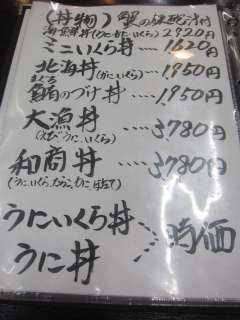 (丼物) 蟹の鉄砲汁付
海鮮丼(かに、いくら) 2920円
ミニいくら丼 ‥‥ 1620円
北海丼(かに、いくら) ‥‥ 1,950円
まぐろ
鮪のづけ丼 ‥‥ 1,950円
大漁丼 ‥‥‥ 3780円
(えび、うに、いくら)
和商丼 ‥‥ 3780円
(うに、いくら、たらこ、かに、ほたて)
うにいくら丼
うに丼
時価